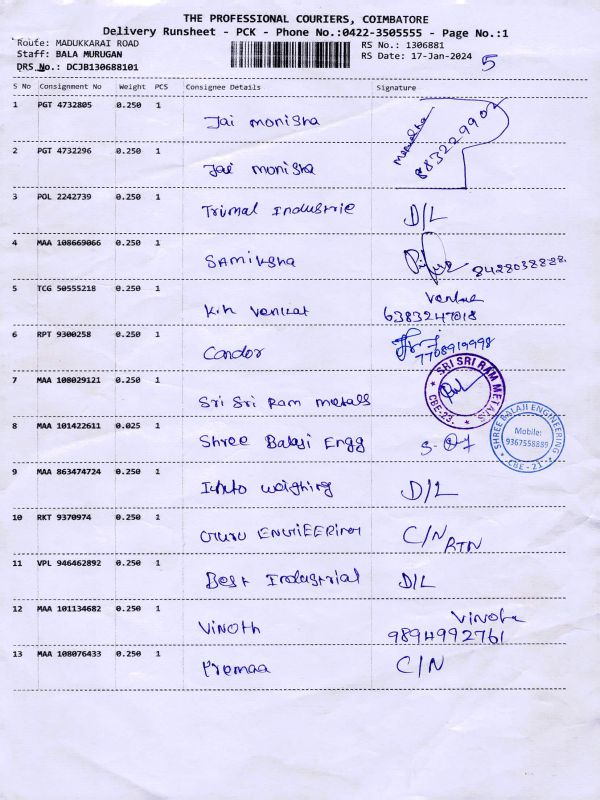 THE PROFESSIONAL COURIERS, COIMBATORE
Delivery Runsheet - PCK - Phone No.:0422-3505555 - Page No.:1
Route: MADUKKARAI ROAD RS No.: 1306881
Staff: BALA MURUGAN RS Date: 17-Jan-2024 5
DRS No.: DCJB130688101
S No Consignment No Weight PCS Consignee Details Signature
1 PGT 4732805 0.250 1 Jai monisha
2 PGT 4732296 0.250 1 Jai monisha
3 POL 2242739 0.250 1 Trimal Industrie D/L
4 MAA 108669066 0.250 1 SAMiksha 8428038828
5 TCG 50555218 0.250 1 K.h Venkat 6383247018
6 RPT 9300258 0.250 1 Condor 7708919998
7 MAA 108029121 0.250 1 Sri Sri Ram metals
SRI SRI RAM METALS
CBE-23.
8 MAA 101422611 0.025 1 Shree Balaji Engg
SHREE BALAJI ENGINEERING
Mobile:
9367558889
CBE - 21
9 MAA 863474724 0.250 1 weighing D/L
10 RKT 9370974 0.250 1 Guru C/N RTN
11 VPL 946462892 0.250 1 Best Industrial D/L
12 MAA 101134682 0.250 1 Vinoth 9894992761
13 MAA 108076433 0.250 1 Premaa C/N